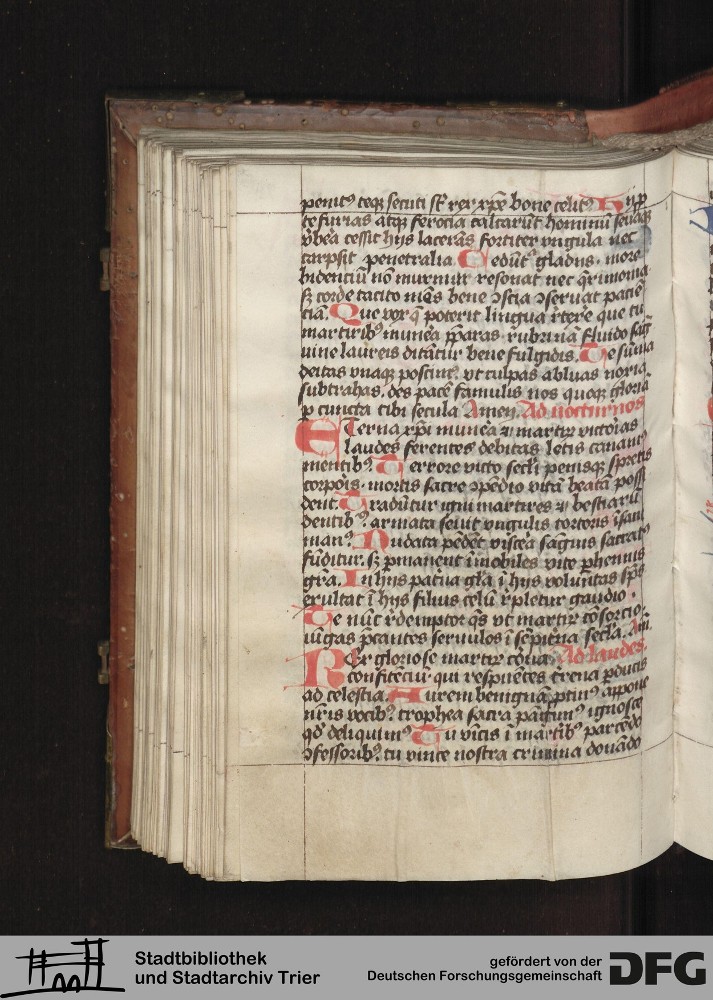 penitus teqz secuti sūt rex xpē bone celitus Hii p̄
te furias atqz ferocia calcarūt hominū seuaqz
v̄bea cessit hijs lacerās fortiter ungula nec
carpsit penetralia Cedūtur gladiis more
bidentiū nō murmur resonat nec q̄rimonia
sz corde tacito mēs bene ↄscia ↄseruat paciē
ciā. Que vox q̄ poterit lingua r̄tere que tu
martiribus munēa p̄paras rubri nā fluido sāg
uine laureis ditātur bene fulgidis. Te sūma
deitas vnaqz poscimus vt culpas abluas noxia
subtrahas. des pacē famulis nos quoqz gloriā
p cuncta tibi secula Amen. Ad nocturnos
Eterna xpi munēa et martirū victorias
laudes ferentes debitas letis canamus
mentibus. Terrore victo secli penisqz spretis
corpōis. mortis sacre ↄpēdio vitā beatā possi
dent. Tradūtur igni martires et bestiarū
dentibus. armata seuit vngulis tortoris īsani
manus. Nudata pēdēt viscēa sāguis sacratus
fūditur. sz p̄manent īmobiles vite p̄hennis
grā. In hijs pat̄na glā ī hijs voluntas sps̄
exultat ī hijs filius celū r̄pletur gaudio.
Te nūc r̄demptor qs̄ vt martirū cōsorcio
iūgas p̄cantes seruulos ī sēpit̄na secla. Am̄.
Rex gloriose martirū corōa Ad laudes.
confitēciū. qui respuētes terrea p̄ducis
ad celestia. Aurem benignā p̄tinus appone
nr̄is vocibus. trophea sacra pāgimus ignosce
qd̄ deliquimus Tu vīcis ī martibus parcēdo
ↄfessoribus. tu vince nostra crimina donādo
Stadtbibliothek
und Stadtarchiv Trier
gefördert von der
Deutschen Forschungsgemeinschaft
DFG